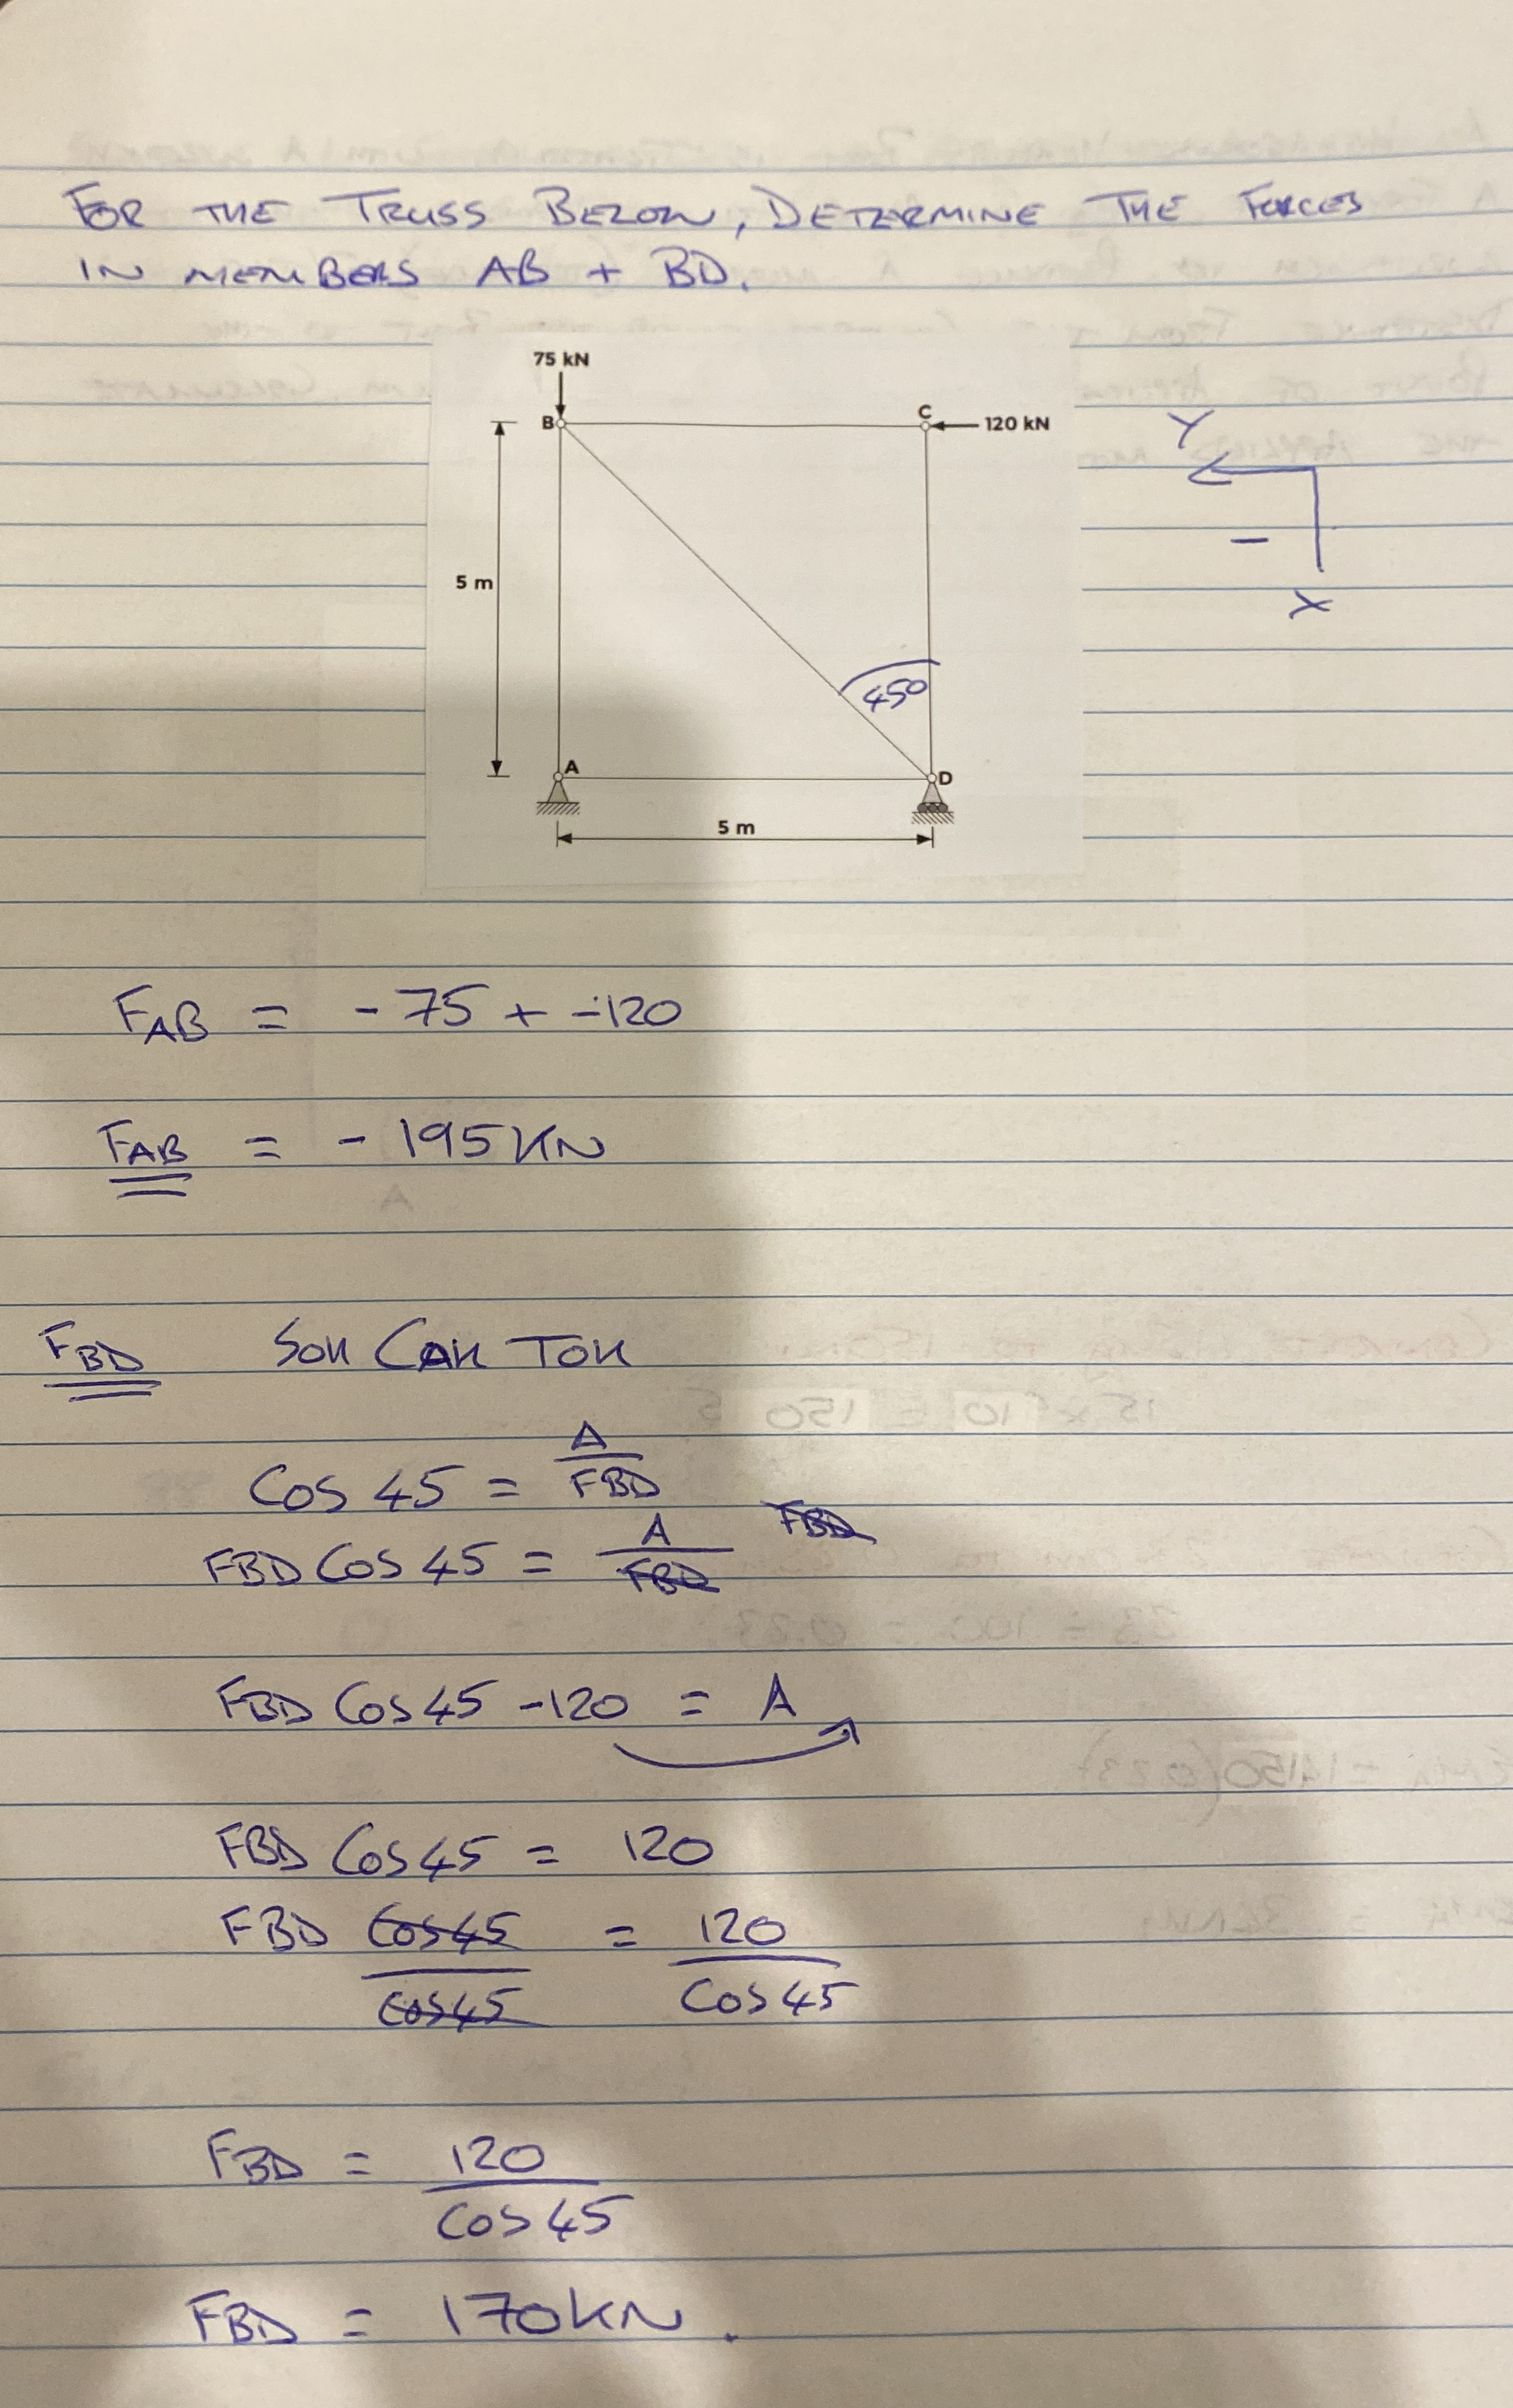 FOR THE TRUSS BELOW, DETERMINE THE FORCES
IN MEMBERS AB + BD.
75 kN
B
C
120 kN
Y
-
X
5 m
45°
A
D
5 m
FAB = - 75 + -120
FAB = - 195KN
FBD SOH CAH TOH
Cos 45 = A/FBD
FBD Cos 45 = A/FBD FBD
FBD Cos 45 -120 = A
FBD Cos 45 = 120
FBD Cos45/Cos45 = 120/Cos 45
FBD = 120/Cos 45
FBD = 170KN.